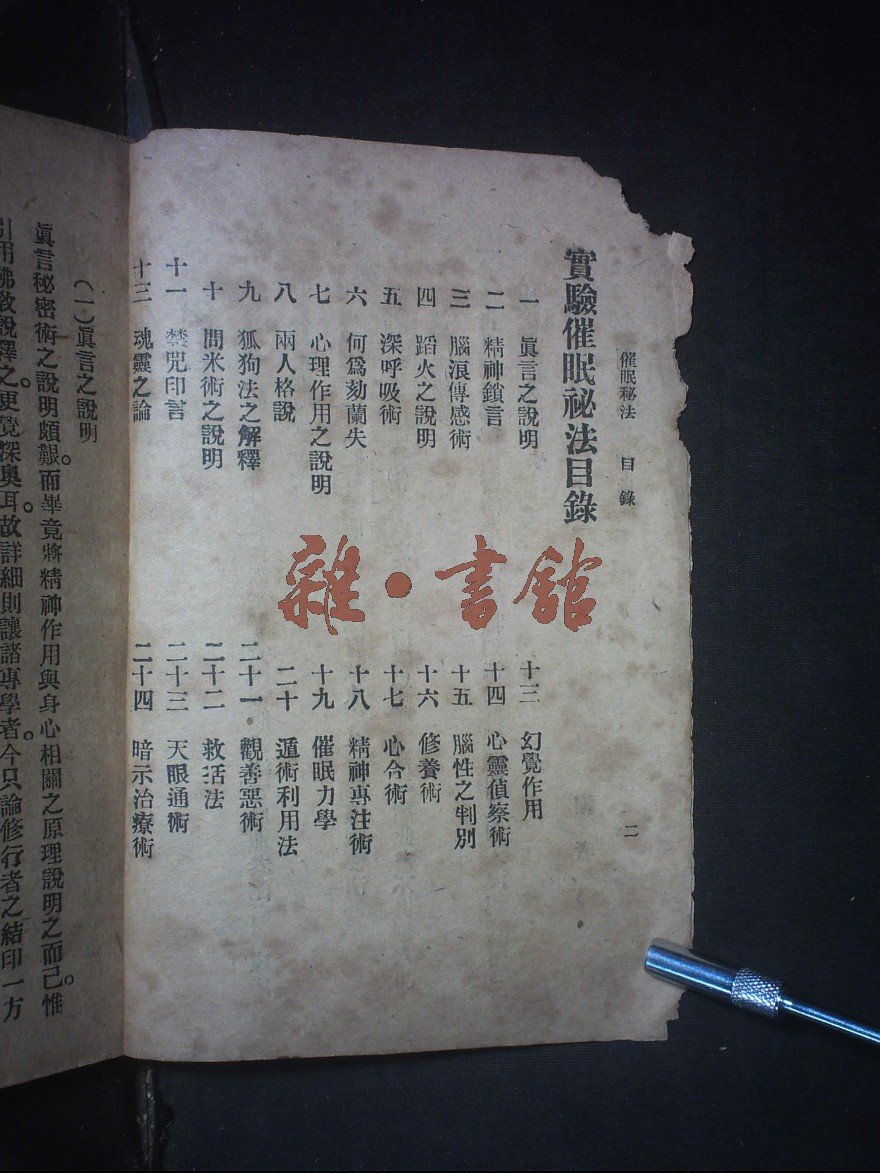 催眠秘法 目錄 二
實驗催眠祕法目錄
一 眞言之說明
二 精神鎖言
三 腦浪傳感術
四 蹈火之說明
五 深呼吸術
六 何爲蘭失
七 心理作用之說明
八 兩人格說
九 狐狗法之解釋
十 問米術之說明
十一 禁咒印言
十三 魂靈之論
十三 幻覺作用
十四 心靈偵察術
十五 腦性之判別
十六 修養術
十七 心合術
十八 精神專注術
十九 催眠力學
二十 遁術利用法
二十一 觀善惡術
二十二 救活法
二十三 天眼通術
二十四 暗示治療術
雜·書館
(一)眞言之說明
眞言秘密術之說明頗艱。而畢竟將精神作用與身心相關之原理說明之而已。惟
引用佛敎說釋之。更覺深奧耳。故詳細則讓諸專學者。今只論修行者之結印一方